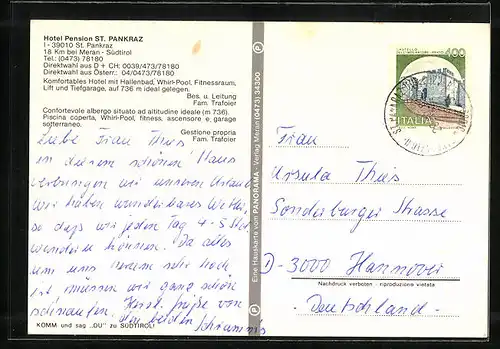 Hotel Pension ST. PANKRAZ
I - 39010 St. Pankraz
18 Km bei Meran - Südtirol
Tel.: (0473) 78180
Direktwahl aus D + CH: 0039/473/78180
Direktwahl aus Österr.: 04/0473/78180
Komfortables Hotel mit Hallenbad, Whirl-Pool, Fitnessraum,
Lift und Tiefgarage, auf 736 m ideal gelegen.
Bes. u. Leitung
Fam. Trafoier
Confortevole albergo situato ad altitudine ideale (m 736).
Piscina coperta, Whirl-Pool, fitness, ascensore e garage
sotterraneo.
Gestione propria
Fam. Trafoier
Liebe Frau Thies
in diesem schönen Haus
verbringen wir unseren Urlaub
Wir haben wunderbares Wetter,
so dass wir jeden Tag 4-5 Std.
wandern können. Da alles
um uns herum sehr hoch
ist müssen wir ganz schön
schnaufen. Herzl. Grüße von
den beiden Schramms
KOMM und sag "DU" zu SÜDTIROL!
Eine Hauskarte vom PANORAMA - Verlag Meran (0473) 34300
400
ITALIA
Frau
Ursula Thies
Sonderburger Strasse
D-3000 Hannover
Nachdruck verboten - riproduzione vietata
Deutschland